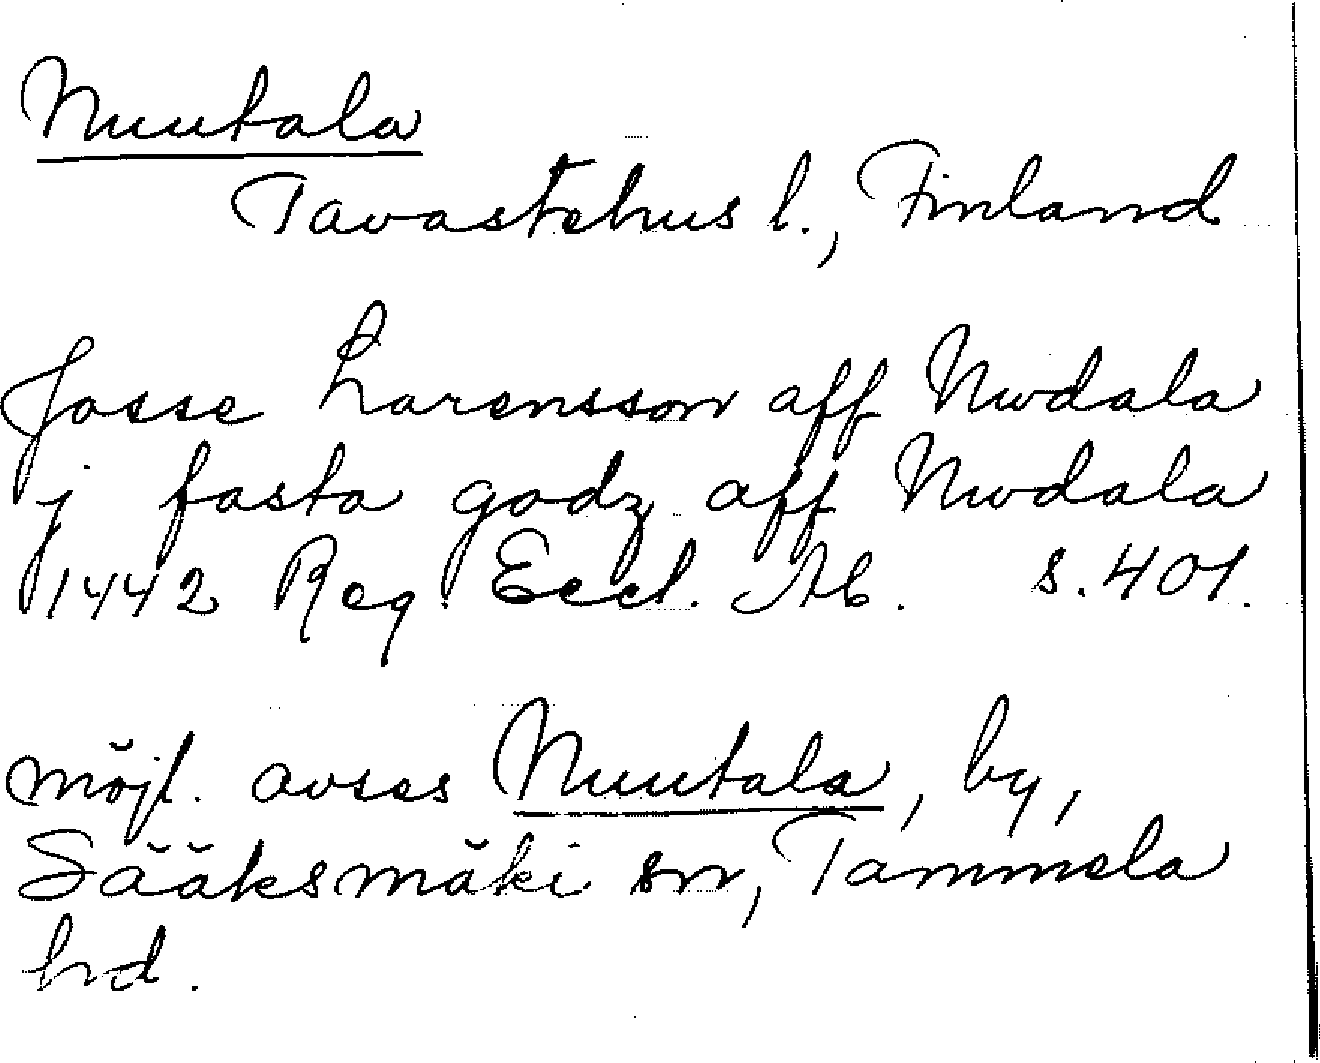 Nuutala
Tavastehus l., Finland
Josse Larensson aff Nwdala
j fasta godz aff Nwdala
1442 Reg. Eccl. Ab. s. 401.
möjl. avses Nuutala, by,
Sääksmäki sn, Tammela
hd.